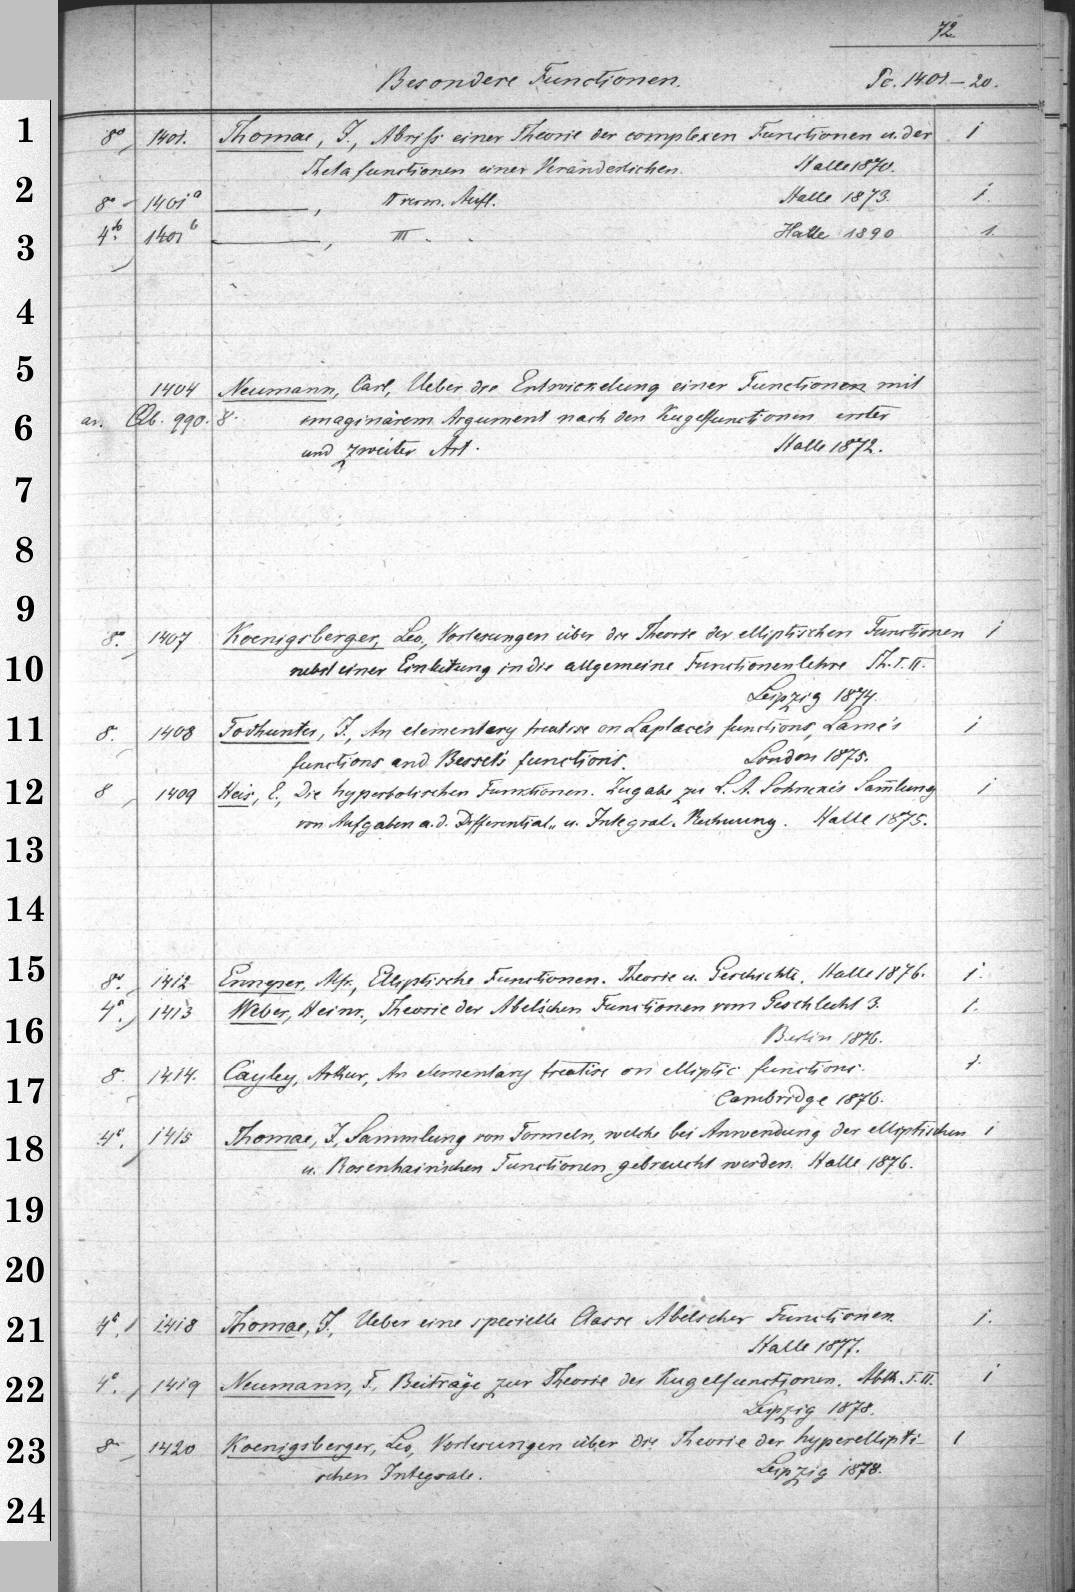 72.
Besondere Functionen. Pc. 1401–20.
1
8° 1401. Thomae, J., Abriss einer Theorie der complexen Functionen u. der 1
Thetafunctionen einer Veränderlichen. Halle 1870.
2
8° 1401a ———, II verm. Aufl. Halle 1873. 1.
3
4° 1401b ———, III. Halle 1890 1.
4
5
1404 Neumann, Carl, Ueber die Entwickelung einer Functionen mit
6
990. 8. imaginärem Argument nach den Kugelfunctionen erster
und zweiter Art. Halle 1872.
7
8
9
8° 1407 Koenigsberger, Leo, Vorlesungen über die Theorie der elliptischen Functionen 1
10
nebst einer Einleitung in die allgemeine Functionenlehre Th. I. II.
Leipzig 1874.
11
8. 1408 Todhunter, J., An elementary treatise on Laplace's functions, Lamé's 1
functions and Bessel's functions. London 1875.
12
8 1409 Heis, E., Die hyperbolischen Functionen. Zugabe zu L. A. Sohncke's Sammlung 1
von Aufgaben a. d. Differential- u. Integral-Rechnung. Halle 1875.
13
14
15
8° 1412 Enneper, Alfr., Elliptische Functionen. Theorie u. Geschichte. Halle 1876. 1.
4° 1413 Weber, Heinr., Theorie der Abelschen Functionen vom Geschlecht 3. 1.
16
Berlin 1876.
8. 1414. Cayley, Arthur, An elementary treatise on elliptic functions. 1.
17
Cambridge 1876.
4° 1415 Thomae, J., Sammlung von Formeln, welche bei Anwendung der elliptischen 1
18
u. Rosenhain'schen Functionen gebraucht werden. Halle 1876.
19
20
4° 1418 Thomae, J., Ueber eine specielle Classe Abelscher Functionen. 1.
21
Halle 1877.
4° 1419 Neumann, F., Beiträge zur Theorie der Kugelfunctionen. Abth. I. II. 1
22
Leipzig 1878.
8° 1420 Koenigsberger, Leo, Vorlesungen über die Theorie der hyperellipti- 1
23
schen Integrale. Leipzig 1878.
24